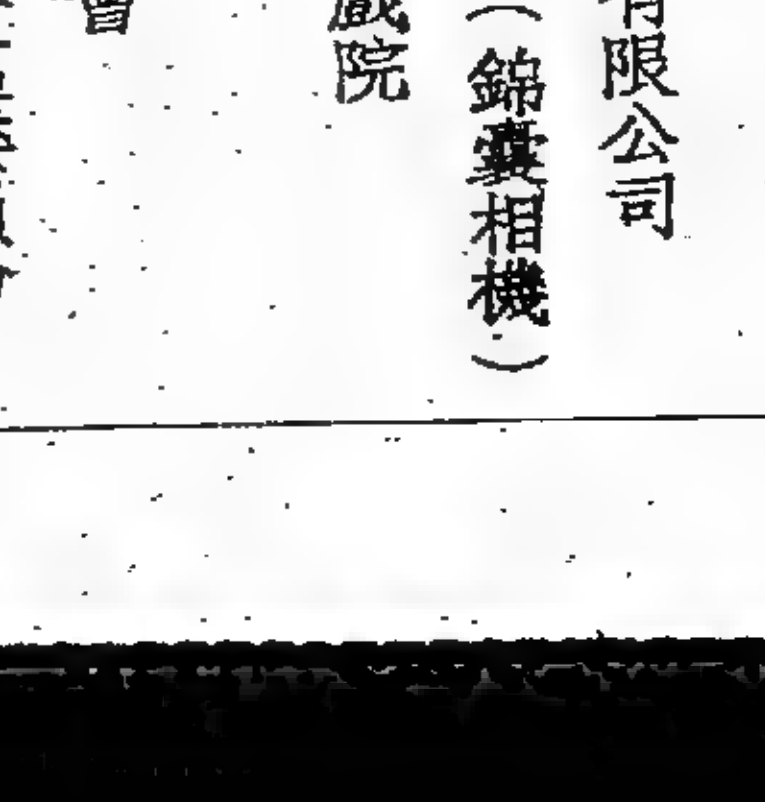 有限公司
（錦囊相機）
戲院
會